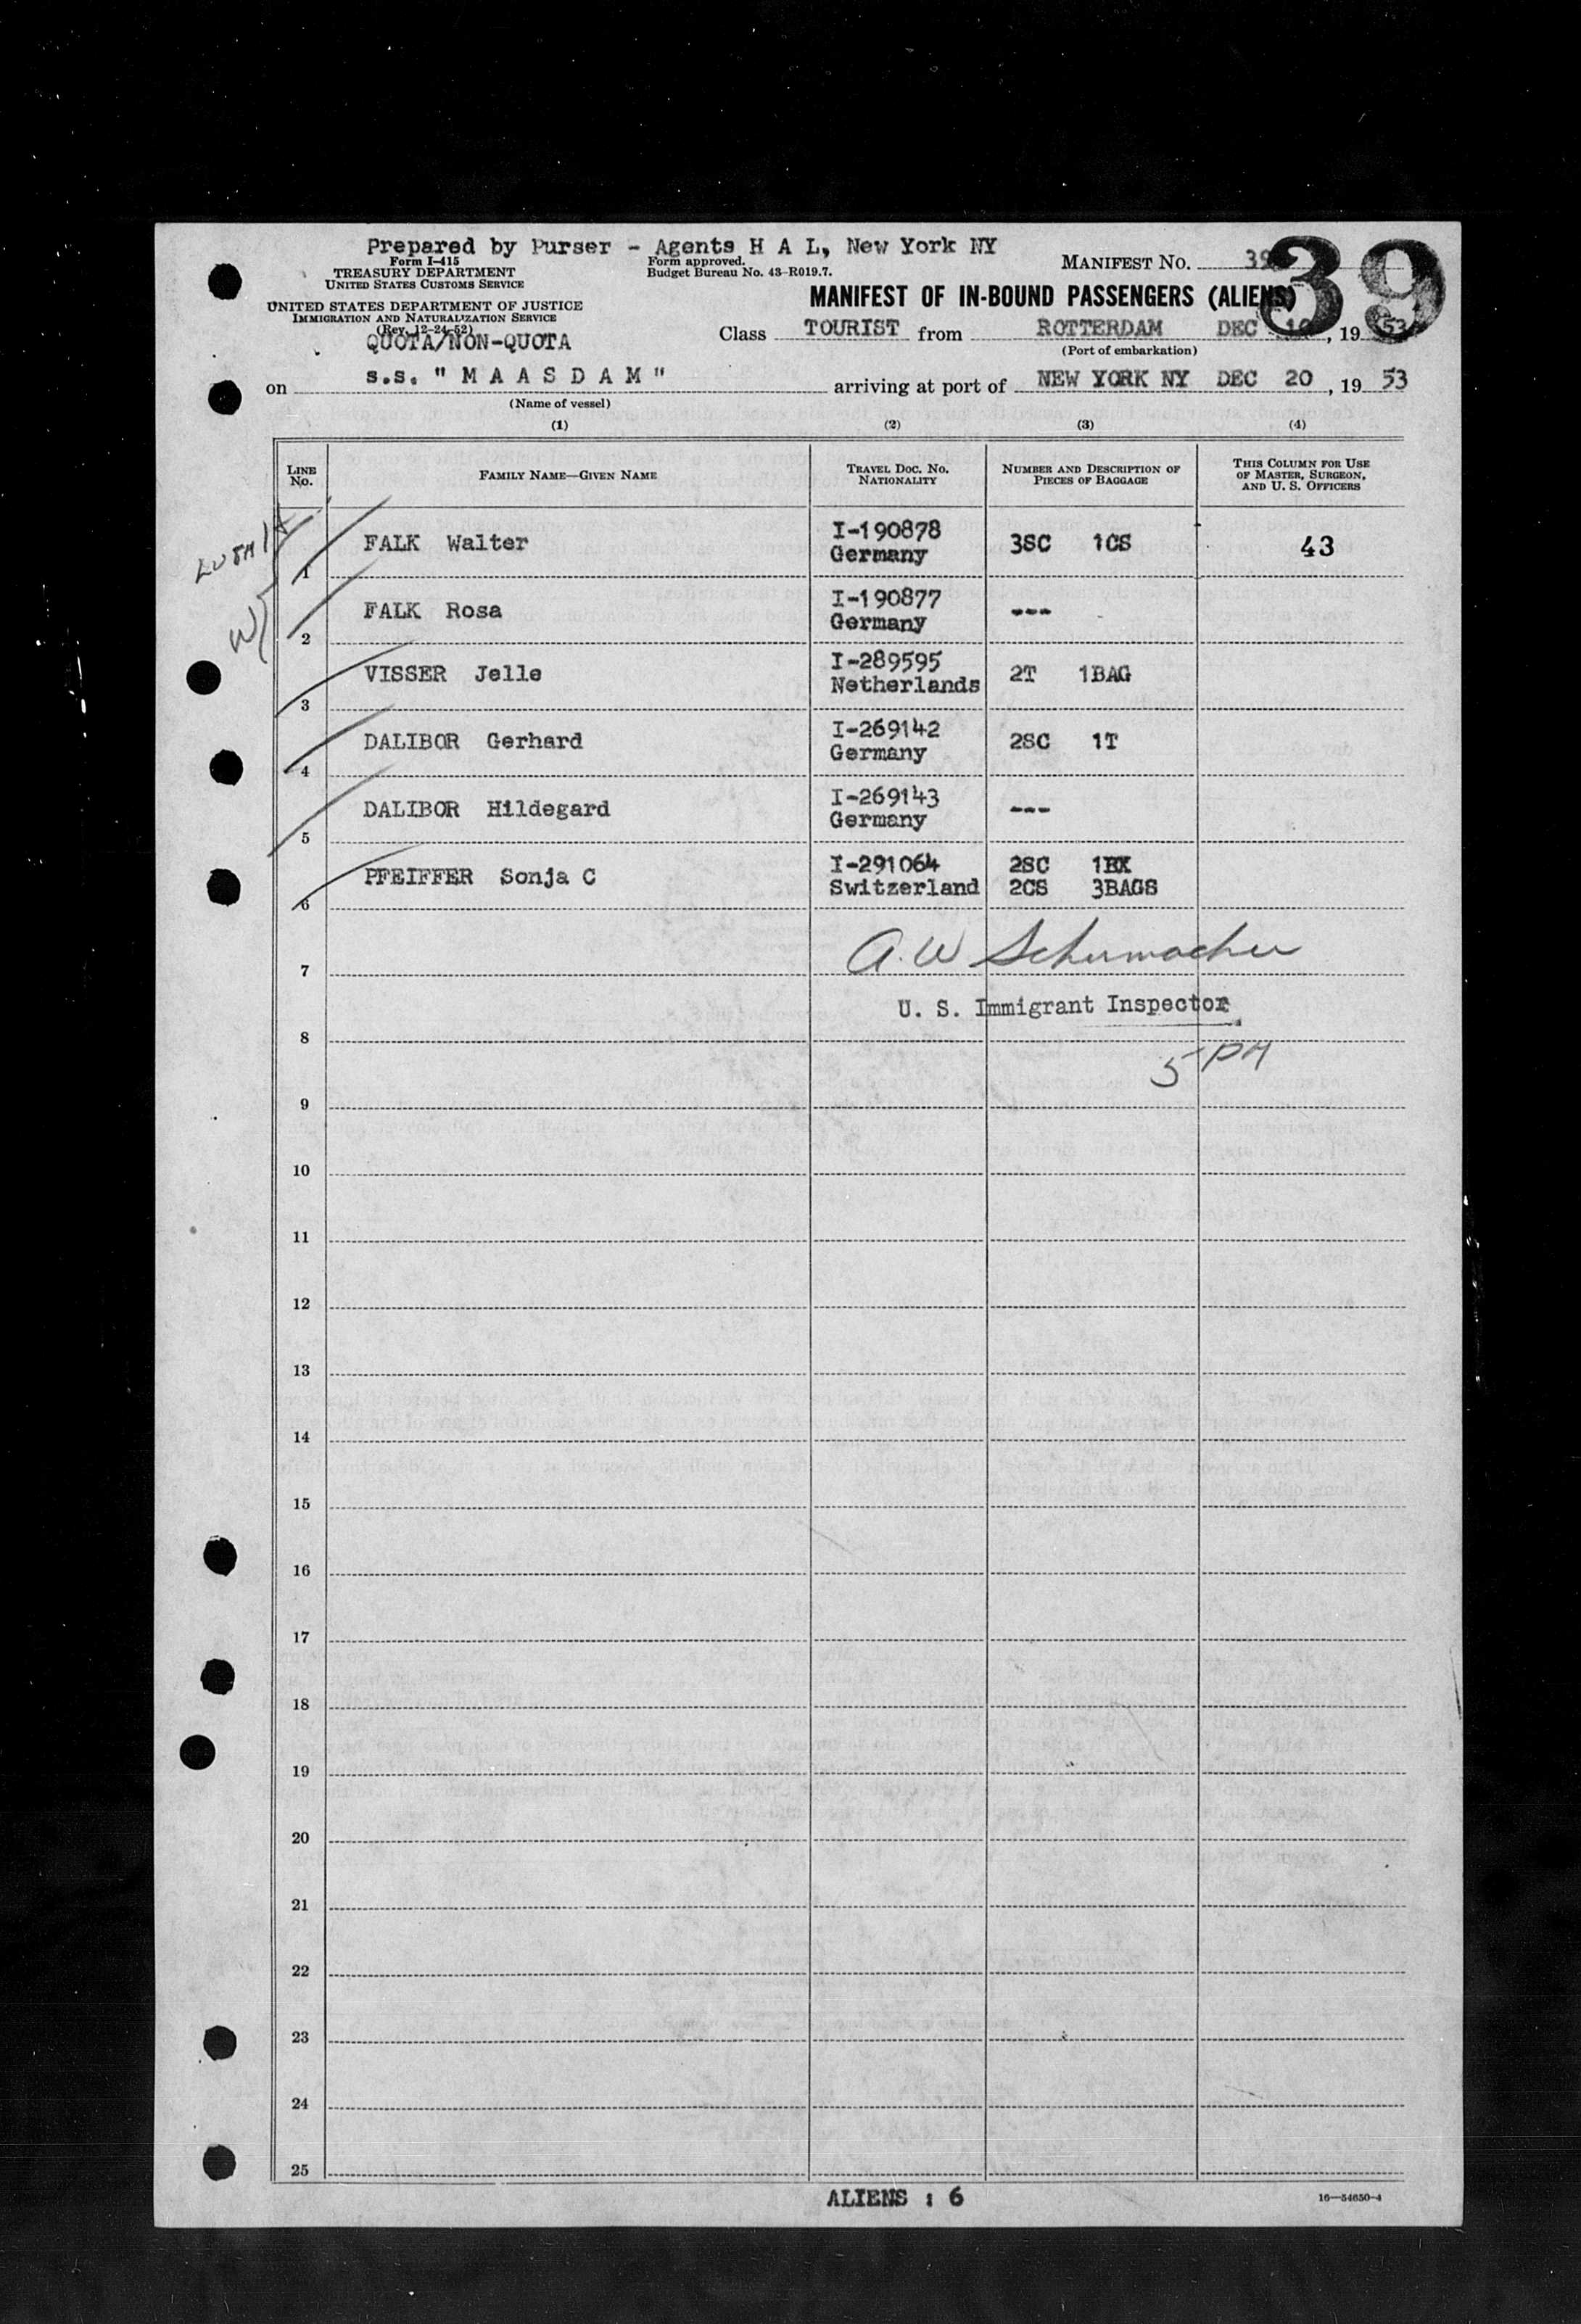 Prepared by Purser - Agents H A L, New York NY
Form I-415
TREASURY DEPARTMENT
UNITED STATES CUSTOMS SERVICE
Form approved.
Budget Bureau No. 43-R019.7.
MANIFEST NO. 39
39
UNITED STATES DEPARTMENT OF JUSTICE
IMMIGRATION AND NATURALIZATION SERVICE
(Rev. 12-24-52)
QUOTA/NON-QUOTA
MANIFEST OF IN-BOUND PASSENGERS (ALIENS)
Class TOURIST from ROTTERDAM DEC 10, 1953
(Port of embarkation)
on s.s. " M A A S D A M " arriving at port of NEW YORK NY DEC 20, 1953
(Name of vessel)
(1) (2) (3) (4)
LINE NO.
FAMILY NAME—GIVEN NAME
TRAVEL DOC. NO.
NATIONALITY
NUMBER AND DESCRIPTION OF
PIECES OF BAGGAGE
THIS COLUMN FOR USE
OF MASTER, SURGEON,
AND U. S. OFFICERS
1 FALK Walter I-190878 Germany 3SC 1CS 43
2 FALK Rosa I-190877 Germany ---
3 VISSER Jelle I-289595 Netherlands 2T 1BAG
4 DALIBOR Gerhard I-269142 Germany 2SC 1T
5 DALIBOR Hildegard I-269143 Germany ---
6 PFEIFFER Sonja C I-291064 Switzerland 2SC 1BX 2CS 3BAGS
7 A. W Schumacher
U. S. Immigrant Inspector
8
5 PM
9
10
11
12
13
14
15
16
17
18
19
20
21
22
23
24
25
ALIENS : 6
16—54650-4